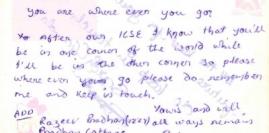 you are where ever you go?
After our ICSE I know that you'll
be in one corner of the world while
I'll be in the other corner so please
where ever you go please do remember
me and keep in touch.
Yours and will
ADD Rajeev Pradhan all ways remain
Pradhan